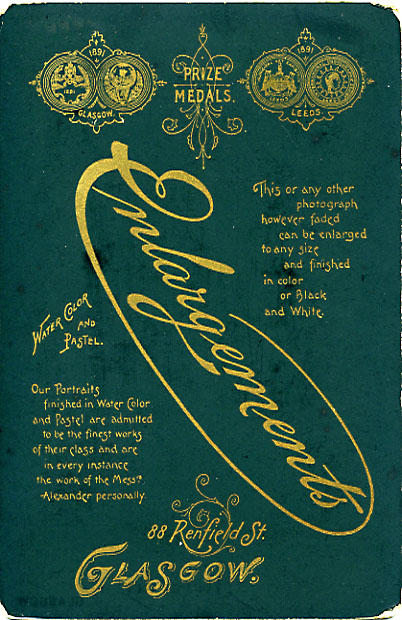 1891
GLASGOW.
PRIZE
MEDALS.
1891
LEEDS.
Enlargements
This or any other
photograph
however faded
can be enlarged
to any size
and finished
in color
or Black
and White.
WATER COLOR
AND
PASTEL.
Our Portraits
finished in Water Color
and Pastel are admitted
to be the finest works
of their class and are
in every instance
the work of the Messrs
Alexander personally.
88 Renfield St.
GLASGOW.